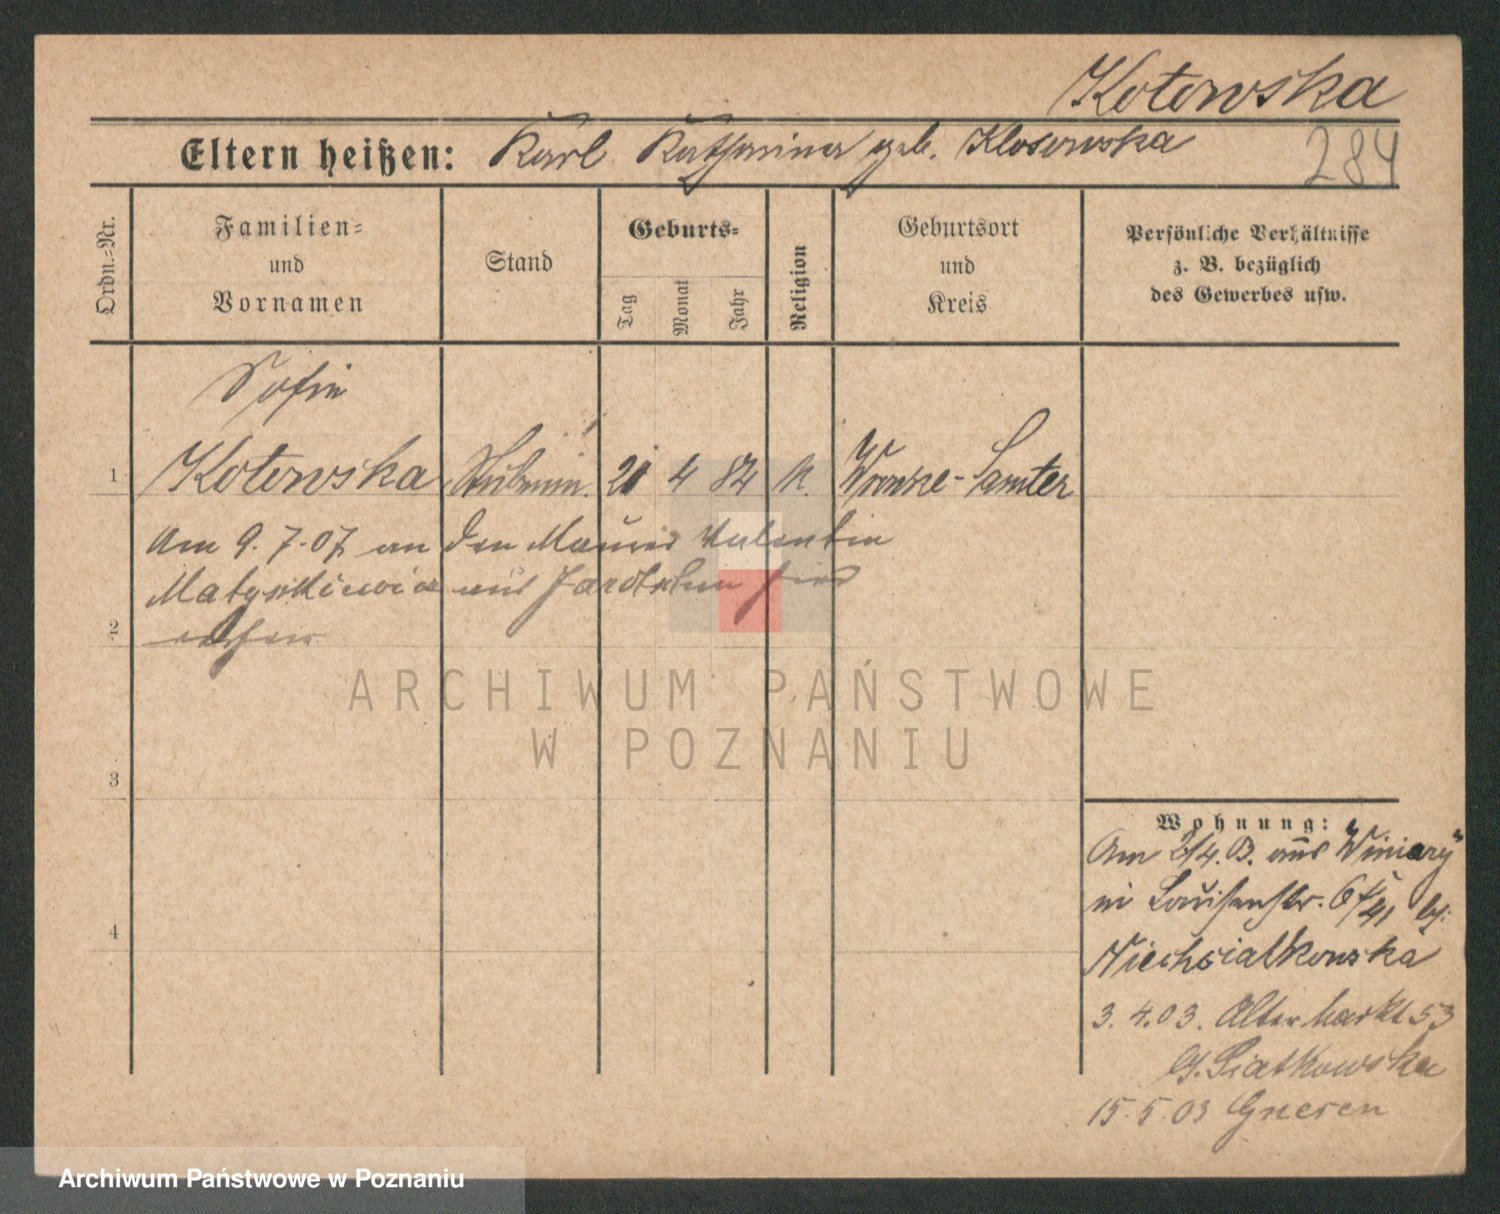 Kotowska
Eltern heißen: Karl Katharina geb. Klosowska
284
Ordn.-Nr.
Familien-
und
Vornamen
Stand
Geburts-
Tag
Monat
Jahr
Religion
Geburtsort
und
Kreis
Persönliche Verhältnisse
z. B. bezüglich
des Gewerbes usw.
Sofie
1 Kotowska 21 4 84 K. Wronke-Samter
Am 9.7.07 an den Maurer Valentin
aus Jarotschin hier
2
3
4
Wohnung:
Am 2/4. 03. aus "Winiary"
in Louisenstr. b.
Niechcialkowska
3. 4. 03. Alter Markt 53
b. Siatkowska
15. 5. 03 Gnesen
ARCHIWUM PAŃSTWOWE
W POZNANIU
Archiwum Państwowe w Poznaniu